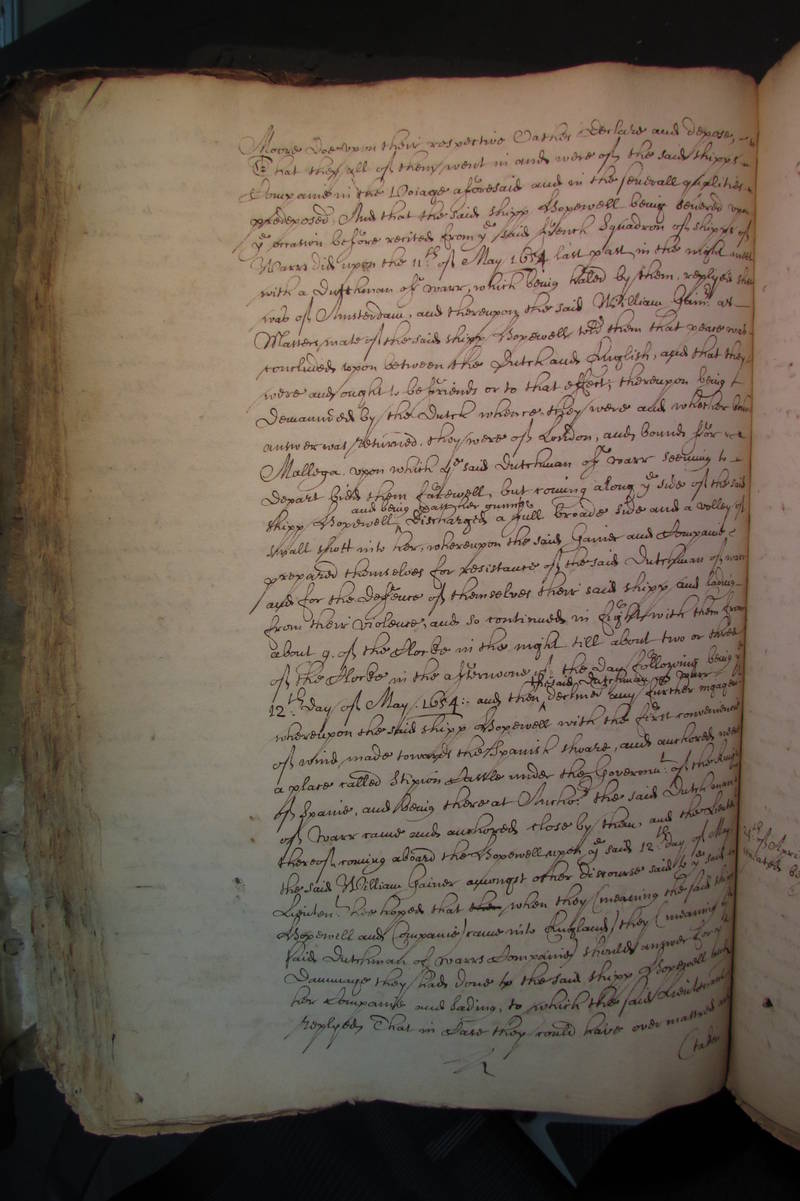 Moore doe upon their respective Oathes declare and depose,
That they all of them went in and were of the said shipps
Companie in the Voiage aforesaid and in the severall qualities
predeposed, And that the said shipp Hopewell being severed upon
ye occation before recited from ye said french Squadron of shipps of
Warr did upon the 11th of May 1654 last past in the night meet
with a Dutchman of warr, which being haled by them, replyed shee
was of Amsterdam, and thereupon the said William Gainer as
Masters mate of the said shipp Hopewell told them that peace was
concluded upon between the Dutch and English, and that they
were and ought to be friends or to that effect, thereupon being
Demaunded by the Dutch whence they were and whether bound
answer was returned, they were of London, and bound for
Mallega, upon which ye said Dutchman of warr seeming to
depart bidd them farewell, but coming along ye side of the said
and being past her gunns
shipp Hopewell discharged a full broade side and a volley of
small shott into her, whereupon the said Gainer and Companie
prepared themselves for resistance of the said Dutchman of warr
and for the defence of themselves their said shipp and lading
from their violence, and so continued in fight with them from
about 9. of the Clocke in the night till about two or three
of the Clocke in the afternoone of the day following being ye
the said Dutchman of warr
12th day of May 1654: and then declined any further engagement
whereupon the said shipp Hopewell with the first convenience
of wind made towards the Spanish shoare, and anchored neere
a place called Stipion Castle under the Governmt. of the King
of Spaine, and being there at Anchor the said Dutch man
of Warr came and anchored close by them, and the Lieutent
thereof coming aboard the Hopewell upon ye said 12th day of May
the said William Gainer amongst other discourse said to ye said
Lieutent. hee hoped that when they (meaning the said shipp
Hopewell and Companie) came into England) they (meaning ye
said Dutchman of warrs Companie) should answer for ye
Dammage they had done to the said shipp Hopewell
her Companie and lading, to which the said Lieutenant
replyed That in Case they could have over mastred and
(taken
th of Apri